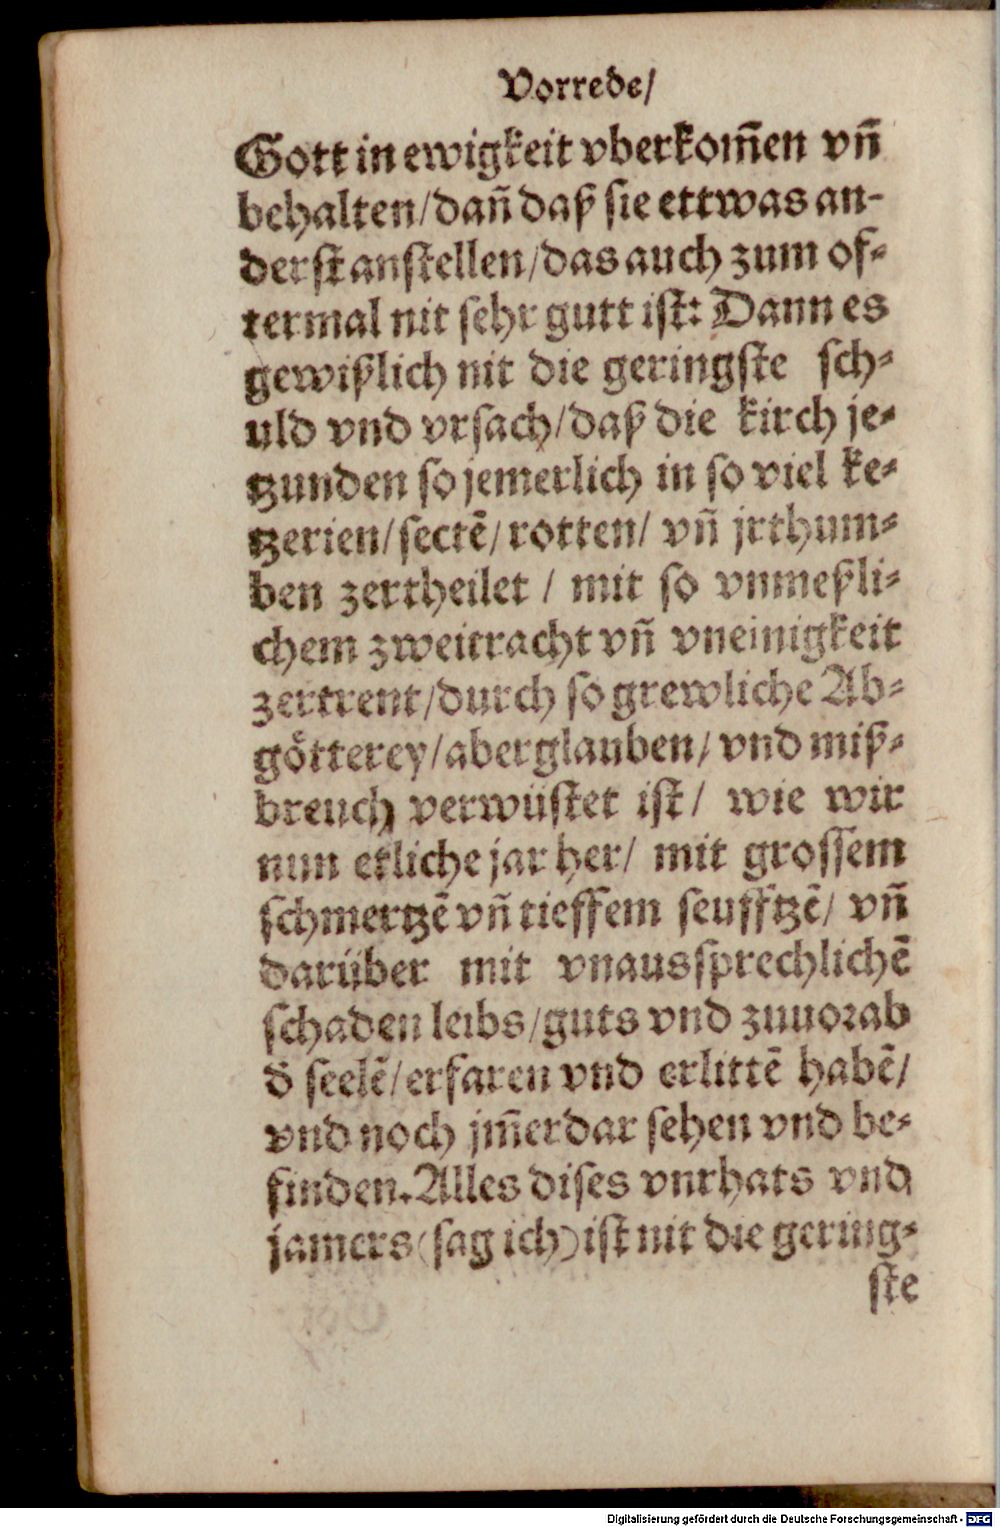 Vorrede/
Gott in ewigkeit vberkom̃en vñ
behalten/dañ daß sie ettwas an-
derst anstellen/das auch zum of-
termal nit sehr gutt ist: Dann es
gewißlich nit die geringste sch-
uld vnd vrsach/daß die kirch je-
tzunden so jemerlich in so viel ke-
tzerien/sectē/rotten/ vñ jrthum-
ben zertheilet / mit so vnmeßli-
chem zweitracht vñ vneinigkeit
zertrent/durch so grewliche Ab-
götterey/aberglauben/vnd miß-
breuch verwüstet ist/ wie wir
nun etliche jar her/ mit grossem
schmertzē vñ tieffem seufftzē/ vñ
darüber mit vnaussprechlichē
schaden leibs/guts vnd zuuorab
d̄ seelē/erfaren vnd erlittē habē/
vnd noch jm̃erdar sehen vnd be-
finden. Alles dises vnrhats vnd
jamers (sag ich) ist nit die gering-
ste
Digitalisierung gefördert durch die Deutsche Forschungsgemeinschaft - DFG